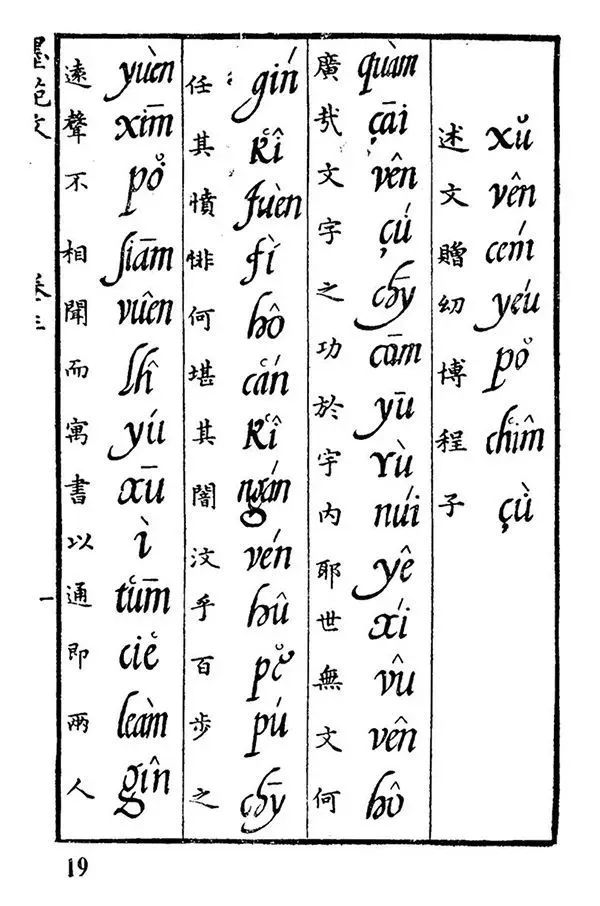 xŭ vên cém yeú pŏ chîm çù
述文贈幼博程子
quàm çāi vên çú chȳ cām yū yù núi yê xí vû vên hô
廣哉文字之功於宇內耶世無文何
gín kî fuèn fì hô cán kî ngán vén hû pĕ pú chȳ
任其憤悱何堪其闇汶乎百步之
yuèn xīm pŏ siām vuên lhî yú xū ì tūm ciĕ leàm gîn
遠聲不相聞而寓書以通即兩人
一
19